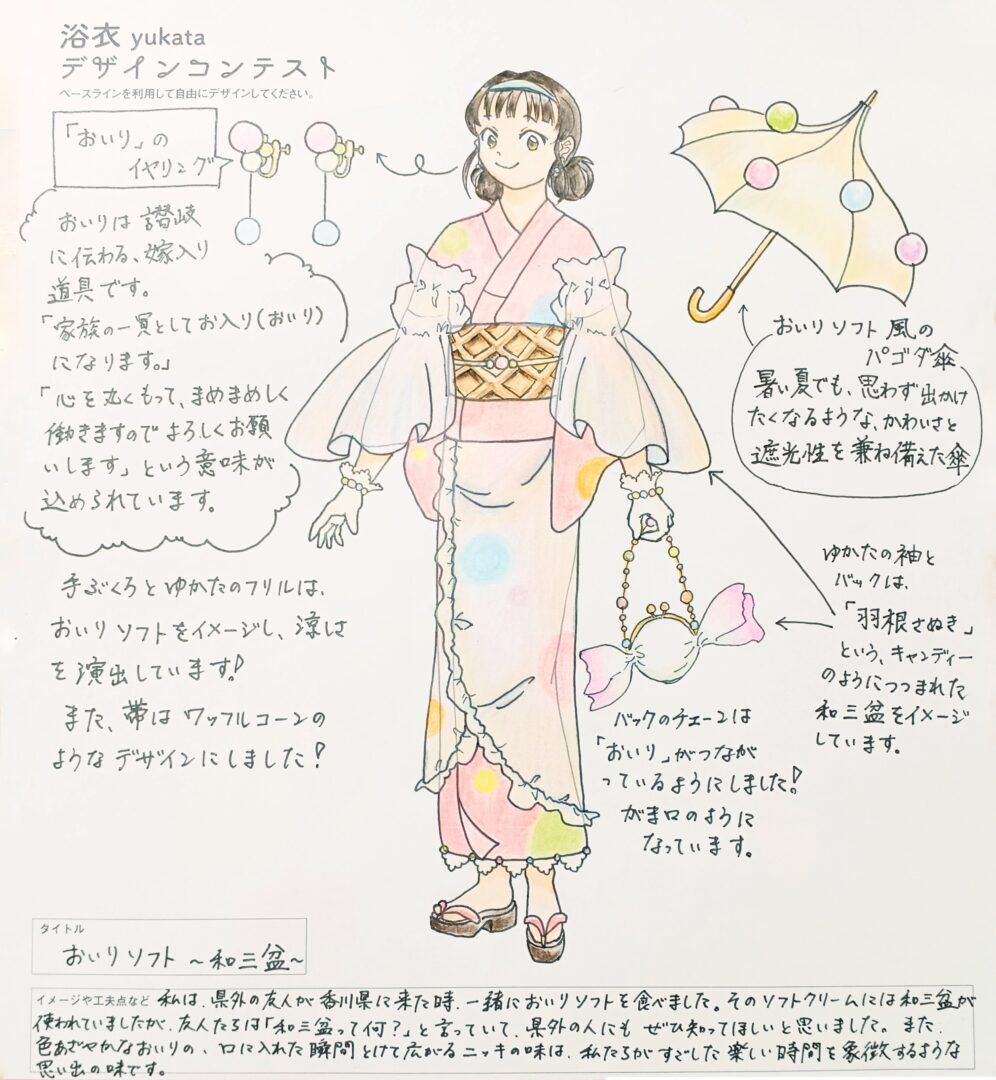 浴衣 yukata
デザインコンテスト
ベースラインを利用して自由にデザインしてください。
「おいり」の
イヤリング
おいりは 讃岐
に伝わる、嫁入り
道具です。
「家族の一員としてお入り(おいり)
になります。」
「心を丸くもって、まめまめしく
働きますので よろしくお願
いします」という意味が
込められています。
手ぶくろとゆかたのフリルは、
おいりソフトをイメージし、涼しさ
を演出しています!
また、帯は ワッフルコーンの
ようなデザインにしました!
おいりソフト風の
パゴダ傘
暑い夏でも、思わず出かけ
たくなるような、かわいさと
遮光性を兼ね備えた傘
ゆかたの袖と
バックは、
「羽根さぬき」
という、キャンディー
のようにつつまれた
和三盆をイメージ
しています。
バックのチェーンは
「おいり」がつなが
っているようにしました!
がま口のように
なっています。
タイトル
おいりソフト ~和三盆~
イメージや工夫点など 私は、県外の友人が香川県に来た時、一緒においりソフトを食べました。そのソフトクリームには和三盆が
使われていましたが、友人たちは「和三盆って何?」と言っていて、県外の人にも ぜひ知ってほしいと思いました。また、
色あざやかなおいりの、口に入れた瞬間とけて広がるニッキの味は、私たちがすごした楽しい時間を象徴するような
思い出の味です。